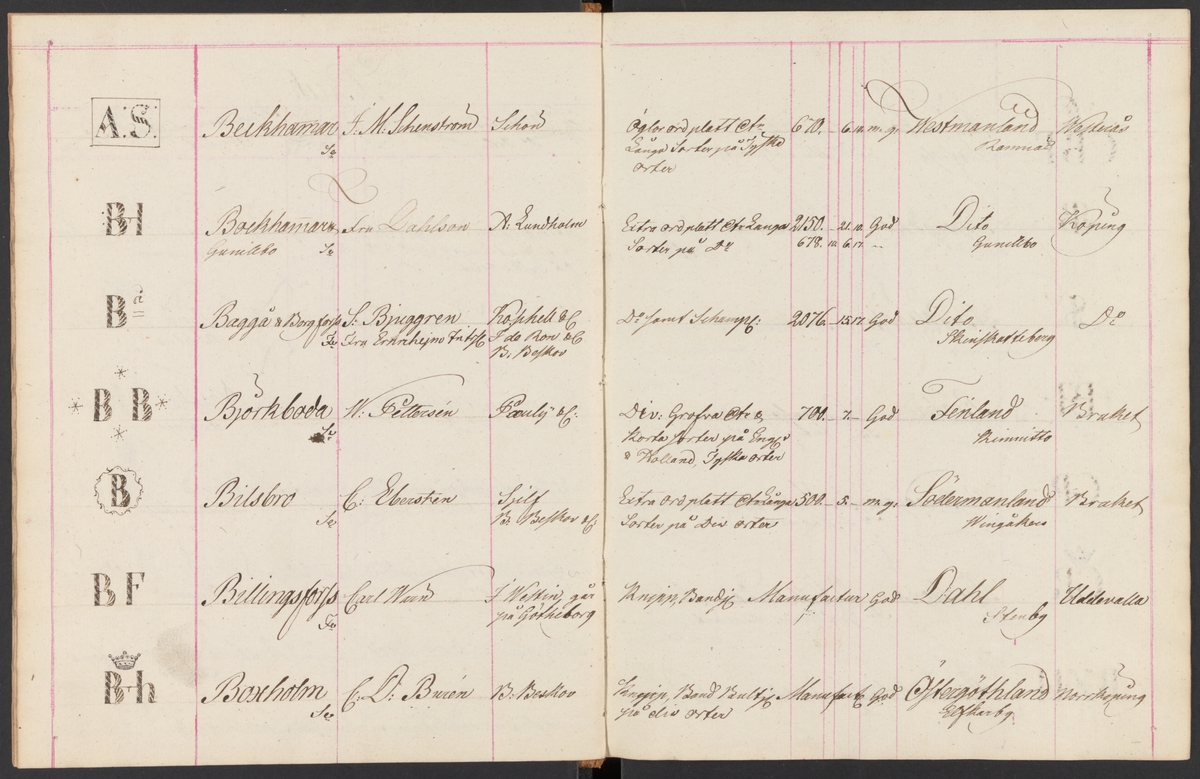 A. S.
Beckhammar
J. M. Schenström
Schön
Oglor ord platt Ctr
Långa Sorter på Tyska
orter
670. — 6.10. m. g.
Westmanland
Ramnäs
Westerås
BH
Bockhammar
Gunilbo
Fru Dahlson
A: Lundholm
Extra ord platt Ctr Långa
Sorter på Do
2150. — 21.10. God
678. 10. 6.17. —
Dito
Gunilbo
Köping
Ba
Baggå & Borgforss
S. Bjuggren
Fru Ehrnhejm
Koschell & C
J de Ron & C
B: Beskov
Do samt Schampl:
2076. — 15.17. God
Dito
Skinskatteberg
Do
* B B *
Björkboda
W. Pettersén
Pauly & C:
Div: Grofva Ctr &
Korta sorter på Engl:
& Holland, Tyska orter
700. — 7. — God
Finland
Kimmitto
Bruket
B
Bilsbro
C: Eberstén
Sjelf
B: Beskov & C:
Extra ord platt Ctr Långa
Sorter på Div orter
500. — 5. — m. g.
Södermanland
Wingåker
Bruket
BF
Billingsforss
Carl Wærn
J Westin, går
på Götheborg
Knipp, Bandj
Manufactur God
Dahl
Stenby
Uddevalla
Bh
Boxholm
C. D: Burén
B: Beskov
Knipp, Band Bultj
på div orter
Manufact God
Östergöthland
Norrköping